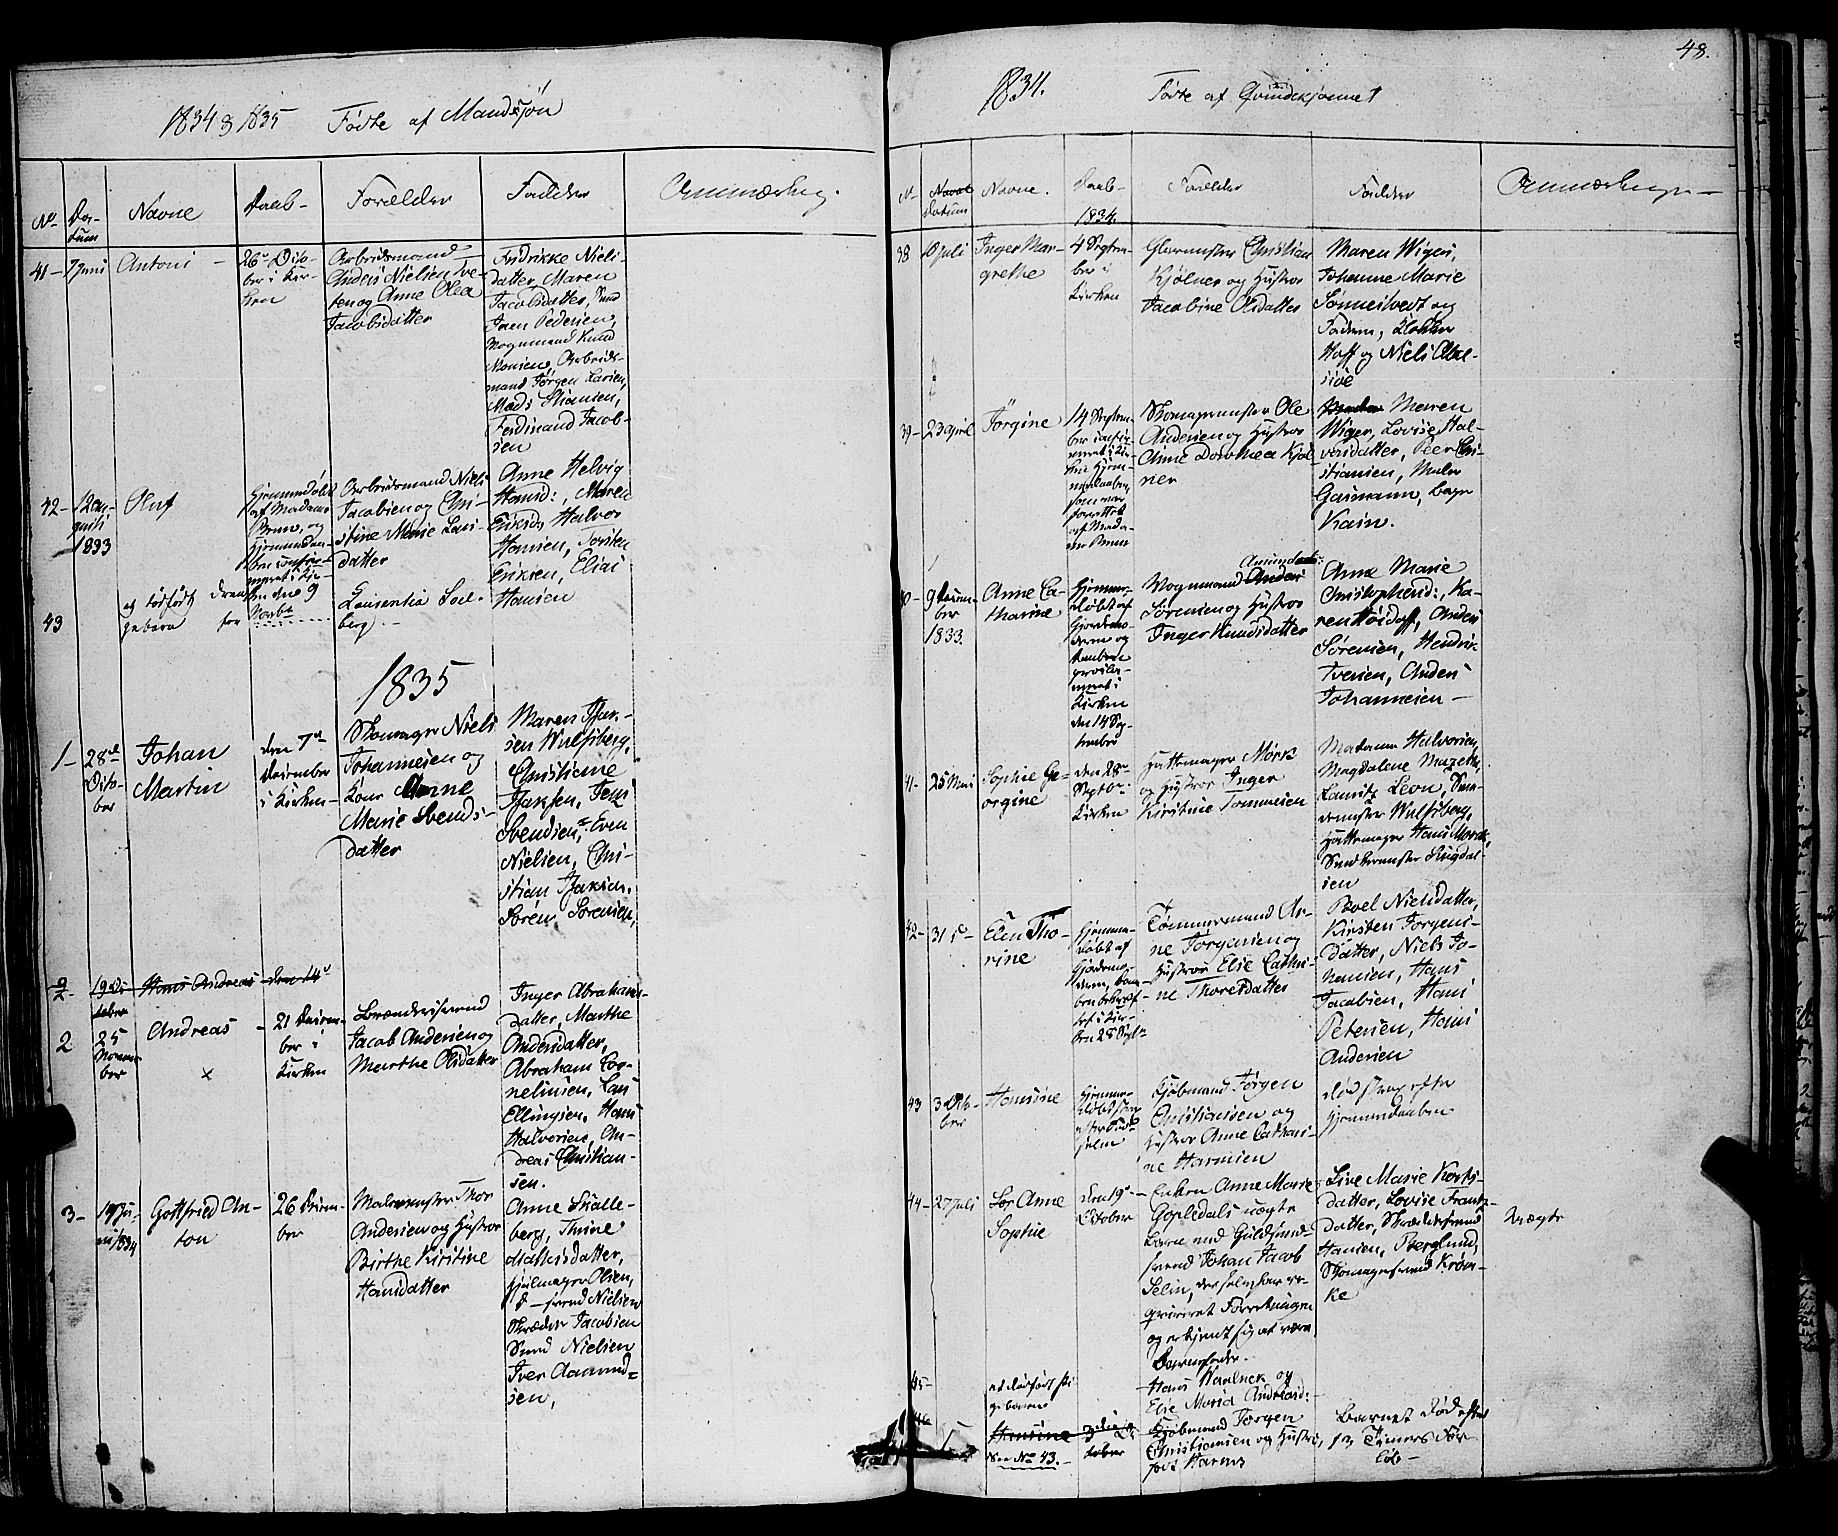 1834 & 1835 Fødte af Mandkjøn
No
Da-
tum
Navne
Daab
Forældre
Faddre
Anmærkng.
41
7 Juni
Antoni
26de Octo-
ber i Kir-
ken
Arbeidsmand
Anders Nielsen Tve-
ten og Anne Olea
Jacobsdatter
Fredrikke Niels-
datter, Maren
Jacobsdatter,
Pedersen,
Vognmand Knud
Monsen, Arbeids-
mand Jörgen Larsen,
Mads
Ferdinand Jacob-
sen
42
12 Au-
gusti
1833
Oluf
Hjemmedøbt
af Madame
Brun, og
Hjemmedaa-
ben confir-
meret i Kir-
ken den 9
Novbr
Arbeidsmand Niels
Jacobsen og Chri-
stine Marie Lars-
datter
Anne Helvig
Hansd:, Maren
Eriksdr, Halvor
Hansen, Torsten
Eriksen, Elias
Hansen
43
et dødfødt Dren-
gebarn for
Laurentia Sol-
berg
1835
1
28de
Octo-
ber
Johan
Martin
den 7de
December
i Kirken
Skomager Niels
Johannesen og
Kone Anne
Marie Svends-
datter
Maren Isak-
sen Wulfsberg,
Christiane
Isaksen, Jens
Svendsen, Even
Nielsen, Chri-
stian Isaksen,
Sören Sörensen,
2
19 Oc-
tober
Hans Andreas
den 14de
2
25
Novem-
ber
Andreas
x
21 Decem-
ber i
Kirken
Brændeviisbrænd
Jacob Andersen og
Marthe Olsdatter
Inger Abrahams-
datter, Marthe
Andersdatter,
Abraham Cor-
neliusen, Lars
Ellingsen, Hans
Halvorsen, An-
dreas Christian-
sen.
3
19 Ju-
ni 1834
Gottfried An-
ton
26 Decem-
ber
Malermester Thor
Andersen og Hustroe
Birthe Kirstine
Hansdatter
Anne Skalle-
berg, Thrine
Mathisdatter,
Hjulmager Olsen,
D- svend Nielsen
Skræder Jacobsen
Svend Nielsen
Iver Aamund-
sen,
48.
1834.
Födte af Qvindekjønnet
No
Datum
Navne.
Daab
1834.
Forældre
Faddre
Anmærkninger
38
10 Juli
Inger Mar-
grethe
4 Septem-
ber i
Kirken
Glarmester Christian
Kjölner og Hustroe
Jacobine Olsdatter
Maren Wiger,
Johanne Marie
Sonnestvedt og
Faderen, Klokker
Hoff og Niels Abel-
siöe
39
23 April
Jörgine
14 Septem-
ber confir-
meret i Kir-
ken Hjem-
medaaben,
som var
forrettet
af Mada-
me Brun
Skomagermester Ole
Andersen og Hustroe
Anne Dorothea Kjöl-
ner
Maren
Wiger, Lovise Hal-
vorsdatter, Peer Chri-
stiansen, Maler
Gasmann, Lars
Kain.
40
9 Decem-
ber
1833.
Anne Ca-
tharine
Hjemme-
døbt af
Gjordemo-
deren og
Daaben
procla-
meret i
Kirken
den 14 Sep-
tember
Vognmand Anders
Sörensen og Hustroe
Inger Knudsdatter
Anne Marie
Christophersd:, Ka-
ren Höisdatt, Anders
Sörensen, Hendrik
Iversen, Anders
Johannesen
41
25 Mai
Sophie Ge-
orgine
den 28de
Septbr i
Kirken
Hattemager Mörk
og Hustroe Inger
Kirstine Tommesen
Madame Halvorsen,
Magdalene Mazetti,
Lauritz Leon, Sne-
dermester Wulfsberg,
Hattemager Hans Mørck,
Snedkermester Ringdal-
sen
42
31 de
Elen Tho-
rine
Hjemme-
døbt af
Gjordemo-
deren, Daa-
ben bekræf-
tet i Kir-
ken 28 Septr
Tömmermand Ar-
ne Jörgensen og
Hustroe Elise Cathri-
ne Thoresdatter
Boel Nielsdatter,
Kirsten Jorgens-
datter, Niels Jo-
hansen, Hans
Jacobsen, Hans
Petersen, Hans
Andersen
43
3 Octo-
ber
Hansine
Hjemme-
døbt strax
efter Föd-
selen
Kjöbmand Jörgen
Christiansen og
Hustroe Anne Cathri-
ne Hansen
död strax efter
Hjemmedaaben
44
27 Juli
Sör Anne
Sophie
den 19de
October
Enken Anne Marie
Gopledals uægte
Barn med Guldsmed-
svend Johan Jacob
Selin, der selv har re-
qvireret Forretningen
og erkjendt sig at være
Barnefader.
Live Marie Korts-
datter, Lovise Frantz-
datter, Skrædersvend
Hansen, Berglund,
Skomagersvend Kröm-
ke
Uægte
45
et dødfødt Pi-
gebarn
Hans Haalnek og
Elise Maria Andreasd:
46
Hansine
See No 43.
3 die Oc-
tober
Kjöbmand Jörgen
Christiansen og Hustroe,
födt Harms
Barnet död efter
24 Timers For
löb